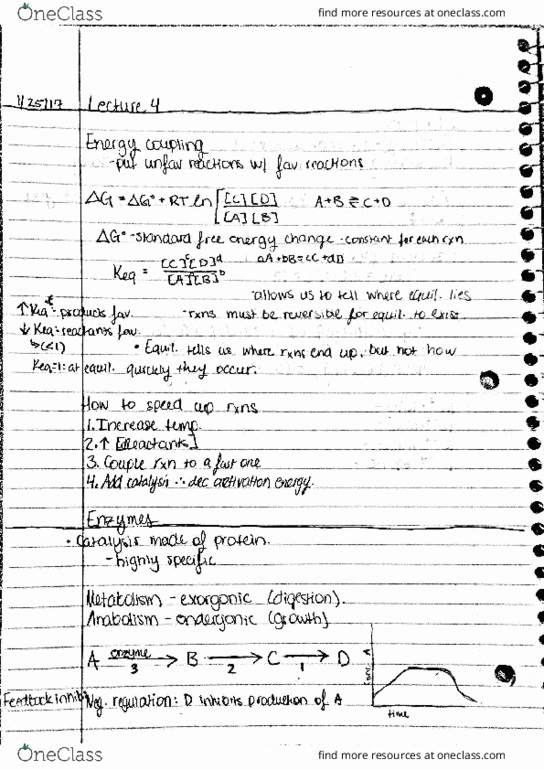 OneClass
find more resources at oneclass.com
1/25/17 Lecture 4
Energy coupling
-put unfav reactions w/ fav reactions
ΔG = ΔG° + RT ln [[C][D]/[A][B] A+B ⇌ C+D
ΔG° -standard free energy change -constant for each rxn
Keq = [C]ᶜ[D]ᵈ/[A]ᵃ[B]ᵇ aA+bB⇌cC+dD
-allows us to tell where equil. lies
↑Keq - products fav. -rxns must be reversible for equil. to exist
↓ Keq - reactants fav.
↳(<1) • Equil. tells us where rxns end up, but not how
Keq=1: at equil. quickly they occur.
How to speed up rxns
1. Increase temp.
2. ↑ [Reactants]
3. Couple rxn to a fast one
4. Add catalysis ∴ dec activation energy.
Enzymes
• Catalysis made of protein.
- highly specific
Metabolism - exorgonic (digestion).
Anabolism - endergonic (growth)
A enzyme → B → C → D
3 2 1
A
time
Feedback inhib Neg. regulation: D inhibits production of A
OneClass
find more resources at oneclass.com